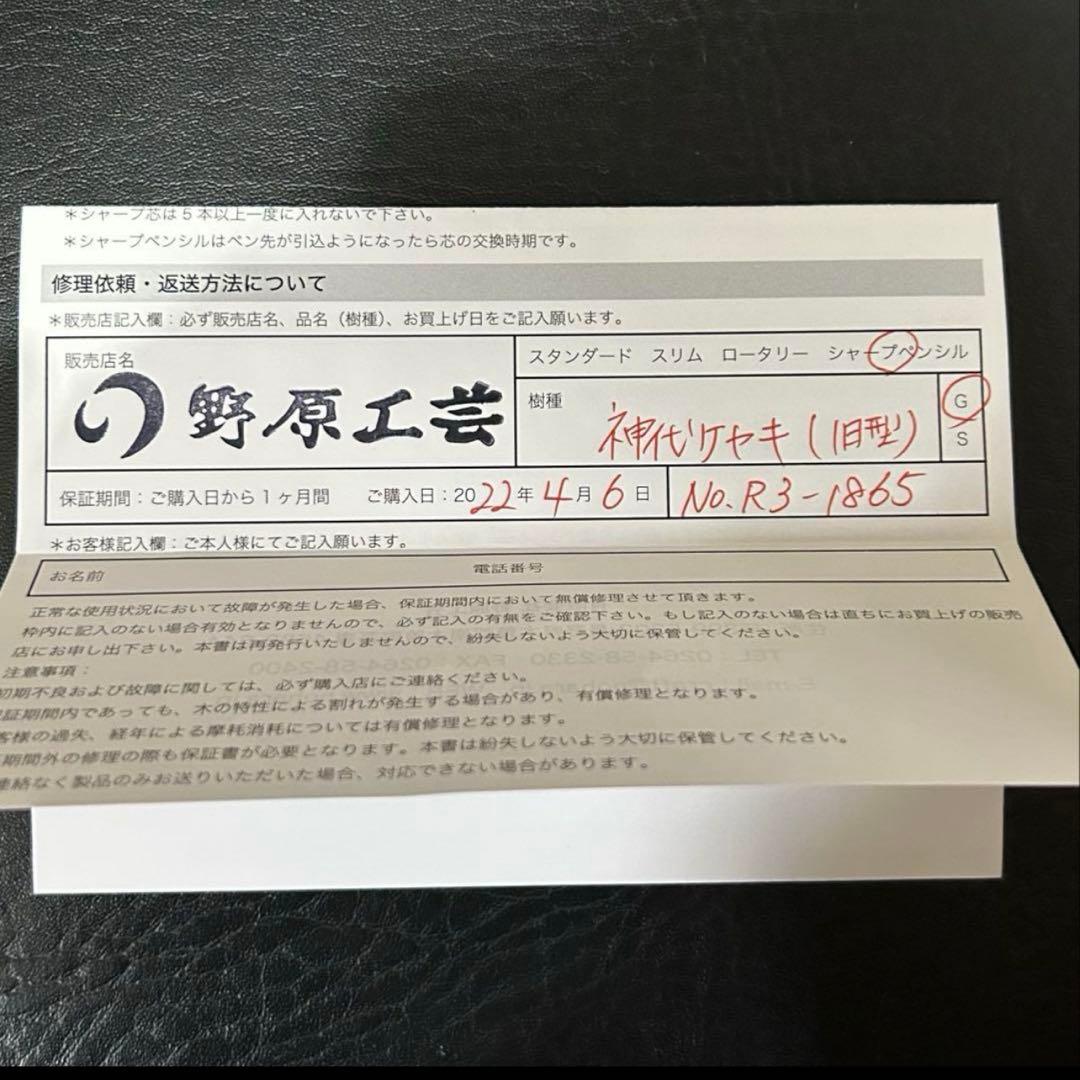 ＊シャープ芯は5本以上一度に入れないで下さい。
＊シャープペンシルはペン先が引込ようになったら芯の交換時期です。
修理依頼・返送方法について
＊販売店記入欄：必ず販売店名、品名（樹種）、お買上げ日をご記入願います。
販売店名
野原工芸
スタンダード スリム ロータリー シャープペンシル
樹種
神代ケヤキ（旧型）
G
S
保証期間：ご購入日から1ヶ月間 ご購入日：2022年4月6日
No.R3-1865
＊お客様記入欄：ご本人様にてご記入願います。
お名前 電話番号
正常な使用状況において故障が発生した場合、保証期間内において無償修理させて頂きます。
枠内に記入のない場合有効となりませんので、必ず記入の有無をご確認下さい。もし記入のない場合は直ちにお買上げの販売
店にお申し出下さい。本書は再発行いたしませんので、紛失しないよう大切に保管してください。
注意事項：
初期不良および故障に関しては、必ず購入店にご連絡ください。
証期間内であっても、木の特性による割れが発生する場合があり、有償修理となります。
客様の過失、経年による摩耗消耗については有償修理となります。
期間外の修理の際も保証書が必要となります。本書は紛失しないよう大切に保管してください。
連絡なく製品のみお送りいただいた場合、対応できない場合があります。
TEL：0264-58-2330 FAX：0264-58-2400